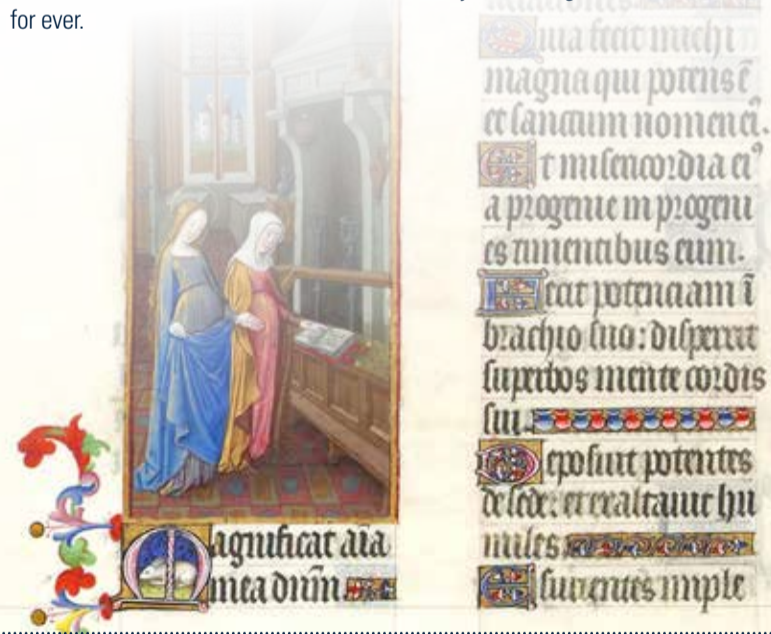 for ever.
Magnificat aīa
mea dnm̄
Quia fecit michi
magna qui potens ē
et sanctum nomen ei᷒.
Et misericordia eiꝰ
a progenie in progeni
es timentibus eum.
Fecit potenciam ī
brachio suo: dispersit
superbos mente cordis
sui.
Deposuit potentes
de sede: et exaltauit hu
miles
Esurientes imple